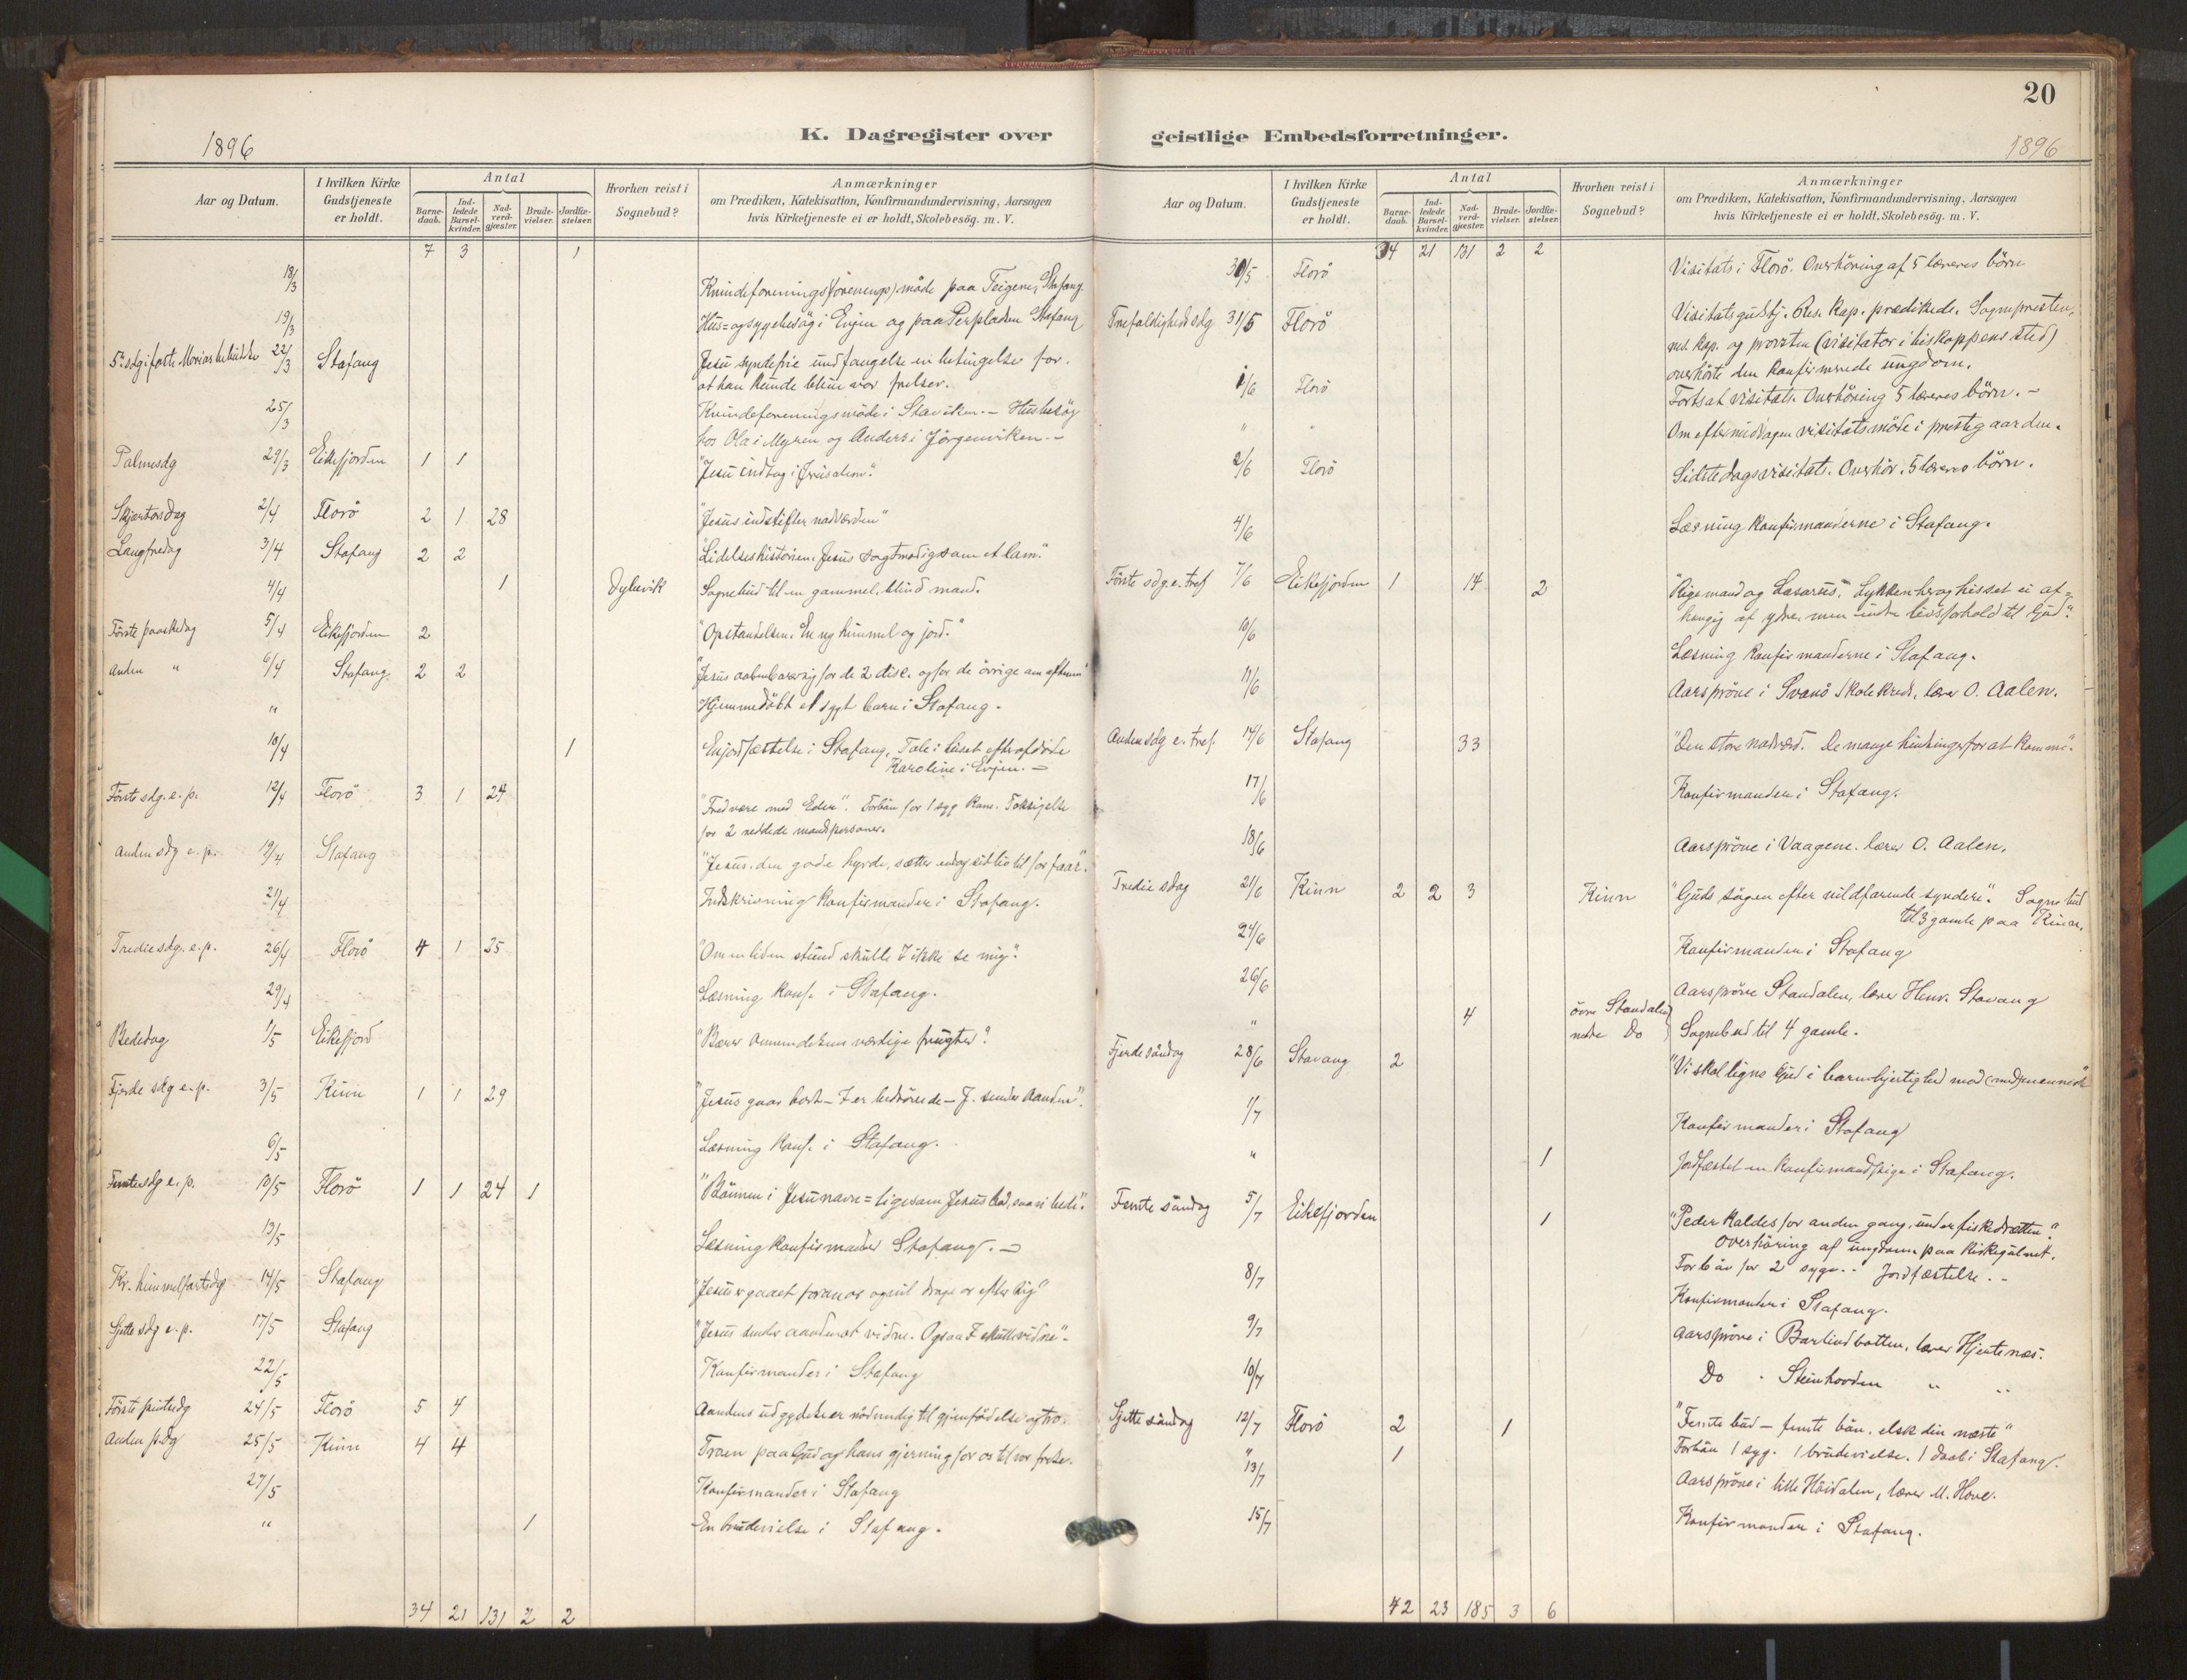 20
1896
K. Dagregister over
Aar og Datum.
I hvilken Kirke Gudstjeneste er holdt.
Antal
Barnedaab.
Indledede Barselkvinder.
Nadverdgjæster.
Brudevielser.
Jordfæstelser.
Hvorhen reist i Sognebud?
Anmærkninger
om Prædiken, Katekisation, Konfirmandundervisning, Aarsagen
hvis Kirketjeneste ei er holdt, Skolebesög. m. V.
7 3 1
18/3 Kvindeforenings møde paa Teigene, Stafang
19/3 Hus= og sygebesøg i Evjen og paa Perpladsen Stafang
5te sdg i faste Marias 22/3 Stafang Jesu syndefrie undfangelse en betingelse for,
at han kunde blive vor frelser.
25/3 Kvindeforeningsmøde i Staviken. - Husbesøg
hos Ola i Myren og Anders i Jørgenviken. -
Palmesdg 29/3 Eikefjorden 1 1 "Jesu indtog i Jerusalem".
Skjærtorsdag 2/4 Florö 2 1 28 "Jesus indstifter nadverden"
Langfredag 3/4 Stafang 2 2 "Lidelseshistorien. Jesus sagtmodig som et lam."
4/4 1 Sognebud til en gammel, blind mand.
Første paaskedag 5/4 Eikefjorden 2 "Opstandelsen. En ny himmel og jord."
Anden " 6/4 Stafang 2 2 "Jesus aabenbarer sig for de 2 disc. og for de øvrige om aftenen"
" Hjemmedøbt et sygt barn i Stafang.
10/4 1 En jordfæstelse i Stafang, Tale i huset efter afdøde
Karoline i Evjen. -
Første sdg. e. p. 12/4 Florö 3 1 24 "Fred være med Eder". Forbøn for 1 syg kone. Taksigelse
for 2 reddede mandspersoner.
Anden sdg e. p. 19/4 Stafang "Jesus, den gode hyrde, sætter endog sit liv til for faar".
21/4 Indskrivning konfirmander i Stafang.
Tredie sdg. e. p. 26/4 Florö 4 1 25 "Om en liden stund skulle I ikke se mig".
29/4 Læsning konf. i Stafang.
Bededag 1/5 Eikefjord "Bærer omvendelsens værdige frugter".
Fjerde sdg e. p. 3/5 Kinn 1 1 29 "Jesus gaar bort - I er bedrøvede - J. sender Aanden".
6/5 Læsning konf. i Stafang.
Femte sdg e. p. 10/5 Florö 1 1 24 1 "Bønnen i Jesu navn = ligesom Jesus bad, saa vi bede".
13/5 Læsning konfirmander Stafang. -
Kr. himmelfartsdg 14/5 Stafang "Jesus er gaaet foran os og vil drage os efter sig"
Sjette sdg e. p. 17/5 Stafang "Jesus sender aanden at vidne. Ogsaa I skulle vidne".
22/5 Konfirmander i Stafang
Første pintsedg 24/5 Florö 5 4 Aandens udgydelse er nødvendig til gjenfødelse og tro.
Anden p. dg 25/5 Kinn 4 4 Troen paa Gud og hans gjerning for os til vor frelse.
27/5 Konfirmander i Stafang
" 1 En brudevielse i Stafang.
34 21 131 2 2
geistlige Embedsforretninger.
1896
Aar og Datum.
I hvilken Kirke Gudstjeneste er holdt.
Antal
Barnedaab.
Indledede Barselkvinder.
Nadverdgjæster.
Brudevielser.
Jordfæstelser.
Hvorhen reist i Sognebud?
Anmærkninger
om Prædiken, Katekisation, Konfirmandundervisning, Aarsagen
hvis Kirketjeneste ei er holdt, Skolebesög. m. V.
34 21 131 2 2
30/5 Florö Visitats i Florö. Overhøring af 5 læreres børn
Trefoldigheds sdg 31/5 Florö Visitatsgudstj. Res. kap. prædikede. Sognepresten,
res. kap. og provsten (visitator i biskoppens sted)
overhørte den konfirmerede ungdom.
1/6 Florö Fortsat visitats. Overhøring 5 læreres børn. -
" " Om eftermiddagen visitatsmøde i prestegaarden.
2/6 Florö Sidste dags visitats. Overhør. 5 læreres børn.
4/6 Læsning konfirmanderne i Stafang.
Første sdg. e. tref 7/6 Eikefjorden 1 14 2 "Rigemand og Lasarus". Lykken her og hisset ei af=
hængig af ydre, men indre livsforhold til Gud".
10/6 Læsning konfirmanderne i Stafang.
11/6 Aarsprøve i Svanø skolekreds, lærer O. Aalen.
Anden sdg e. tref. 14/6 Stafang 33 "Den store nadverd. De mange hindringer for at komme".
17/6 Konfirmander i Stafang.
18/6 Aarsprøve i Vaagene. lærer O. Aalen.
Tredie sdag 21/6 Kinn 2 2 3 Kinn "Guds søgen efter vildfarende syndere". Sognebud
til 3 gamle paa Kinn.
24/6 Konfirmander i Stafang
26/6 Aarsprøve Standalen, lærer Henr. Stavang
" 4 øvre Standalen nedre Do Sognebud til 4 gamle.
Fjerde søndag 28/6 Stavang 2 "Vi skal ligne Gud i barmhjertighed mod (med)mennesk"
1/7 Konfirmander i Stafang
" 1 Jordfæstet en konfirmandpige i Stafang.
Femte søndag 5/7 Eikefjorden 1 "Peder kaldes for anden gang, under fiskedrætten".
Overhøring af ungdom paa kirkegulvet.
Forbøn for 2 syge. - Jordfæstelse. -
8/7 Konfirmander i Stafang.
9/7 Aarsprøve i Barlindbotten, lærer Hjertenæs.
10/7 Do - Steinhovden " "
Sjette søndag 12/7 Florö 2 1 "Femte bud - femte bøn. elsk din næste"
" 1 Forbøn 1 syg. 1 brudevielse. 1 daab i Stafang.
13/7 Aarsprøve i lille Høidalen, lærer M. Hove.
15/7 Konfirmander i Stafang.
42 23 185 3 6